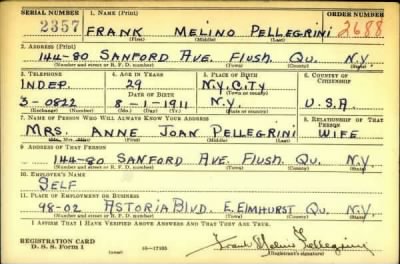 SERIAL NUMBER 1. NAME (Print) ORDER NUMBER
2357 FRANK MELINO PELLEGRINI 2688
(First) (Middle) (Last)
2. ADDRESS (Print)
144-80 SANFORD AVE. FLUSH. QU. N.Y.
(Number and street or R. F. D. number) (Town) (County) (State)
3. TELEPHONE 4. AGE IN YEARS 5. PLACE OF BIRTH 6. COUNTRY OF CITIZENSHIP
INDEP. 29 N.Y. CITY
DATE OF BIRTH (Town or county)
3-0822 8-1-1911 N.Y. U.S.A.
(Exchange) (Number) (Mo.) (Day) (Yr.) (State or country)
7. NAME OF PERSON WHO WILL ALWAYS KNOW YOUR ADDRESS 8. RELATIONSHIP OF THAT PERSON
MRS. ANNE JOAN PELLEGRINI WIFE
(Mr., Mrs., Miss) (First) (Middle) (Last)
9. ADDRESS OF THAT PERSON
144-80 SANFORD AVE. FLUSH. QU. N.Y.
(Number and street or R. F. D. number) (Town) (County) (State)
10. EMPLOYER'S NAME
SELF
11. PLACE OF EMPLOYMENT OR BUSINESS
98-02 ASTORIA BLVD. E. ELMHURST QU. N.Y.
(Number and street or R. F. D. number) (Town) (County) (State)
I AFFIRM THAT I HAVE VERIFIED ABOVE ANSWERS AND THAT THEY ARE TRUE.
REGISTRATION CARD
D. S. S. Form 1 (over) 16—17105 Frank Melino Pellegrini
(Registrant's signature)